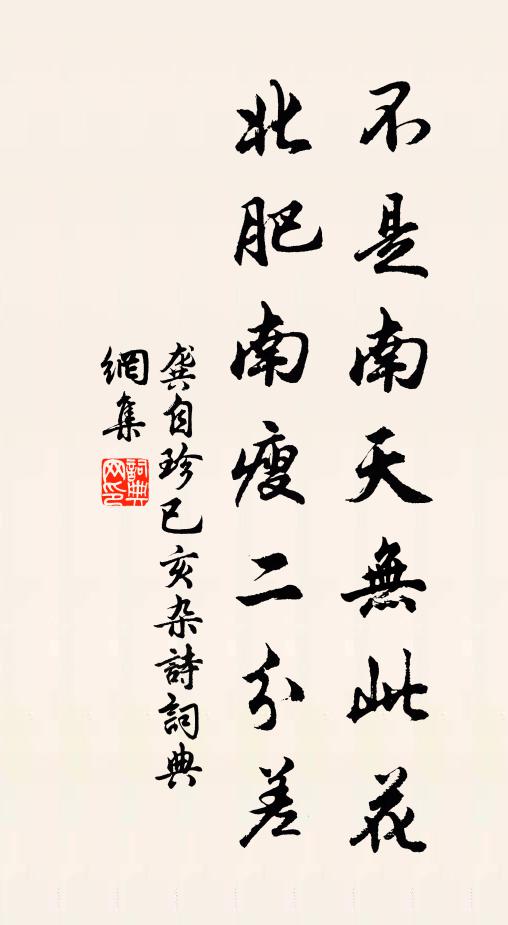 不是南天無此花
北肥南瘦二分差
龔自珍己亥杂詩詞典
網集
詞典
网印